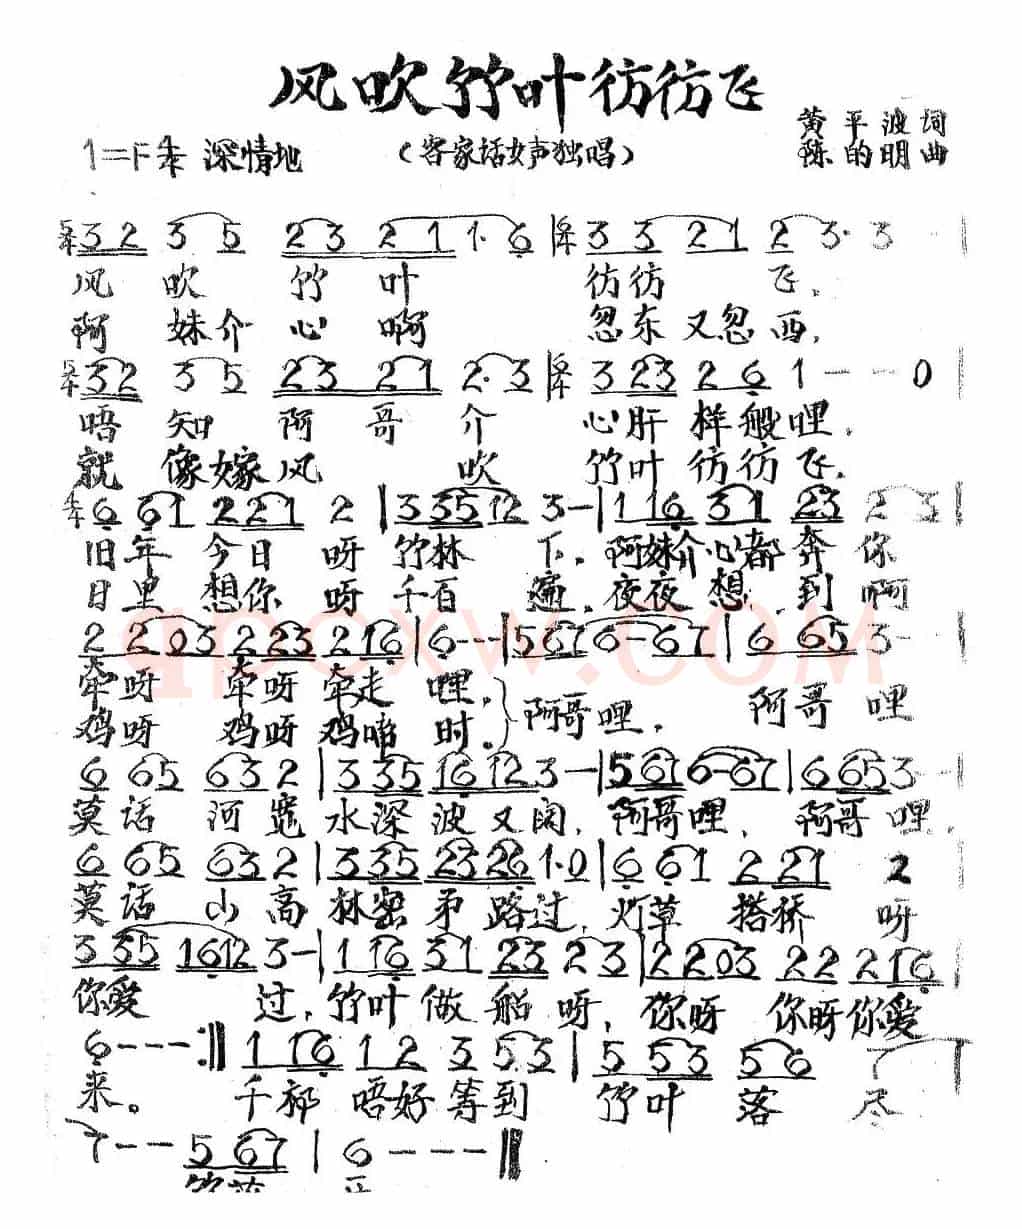 风吹竹叶彷彷飞
黄平波词
1=F 4/4 深情地
(客家话女声独唱)
陈的明曲
5/4 3 2 3 5 2 3 2 1 1· 6 | 4/4 3 3 2 1 2 3· 3 - |
风吹竹叶彷彷飞,
阿妹介心啊忽东又忽西,
5/4 3 2 3 5 2 3 2 1 2· 3 | 4/4 3 2 3 2 6 1 - - 0 |
唔知阿哥介心肝样般哩,
就像嫁风吹竹叶彷彷飞,
6 6 1 2 2 1 2 | 3 3 5 1 2 3 - | 1 1 6 3 1 2 3 2 3 |
旧年今日呀竹林下,阿妹介心都奔你
日里想你呀千百遍,夜夜想到啊
2 2 0 3 2 2 3 2 1 6 | 6 - - - | 5 6 7 6 - 6 7 | 6 6 5 3 - - |
牵呀牵呀牵走哩,阿哥哩,阿哥哩
鸡呀鸡呀鸡啼时。
6 6 5 6 3 2 | 3 3 5 1 6 1 2 3 - | 5 6 7 6 - 6 7 | 6 6 5 3 - - |
莫话河宽水深波又阔,阿哥哩,阿哥哩,
6 6 5 6 3 2 | 3 3 5 2 3 2 6 1· 0 | 6 6 1 2 2 1 2 |
莫话山高林密弟路过,灯草搭桥呀
3 3 5 1 6 1 2 3 - | 1 1 6 3 1 2 3 2 3 | 2 2 0 3 2 2 2 1 6 |
你爱过,竹叶做船呀,你呀你呀你爱
6 - - - :‖ 1 1 6 1 2 3 5 3 | 5 5 3 5 6 7 |
来。千祁唔好等到竹叶落尽
7 - - 5 6 7 | 6 - - - ‖
qpcxw.COM